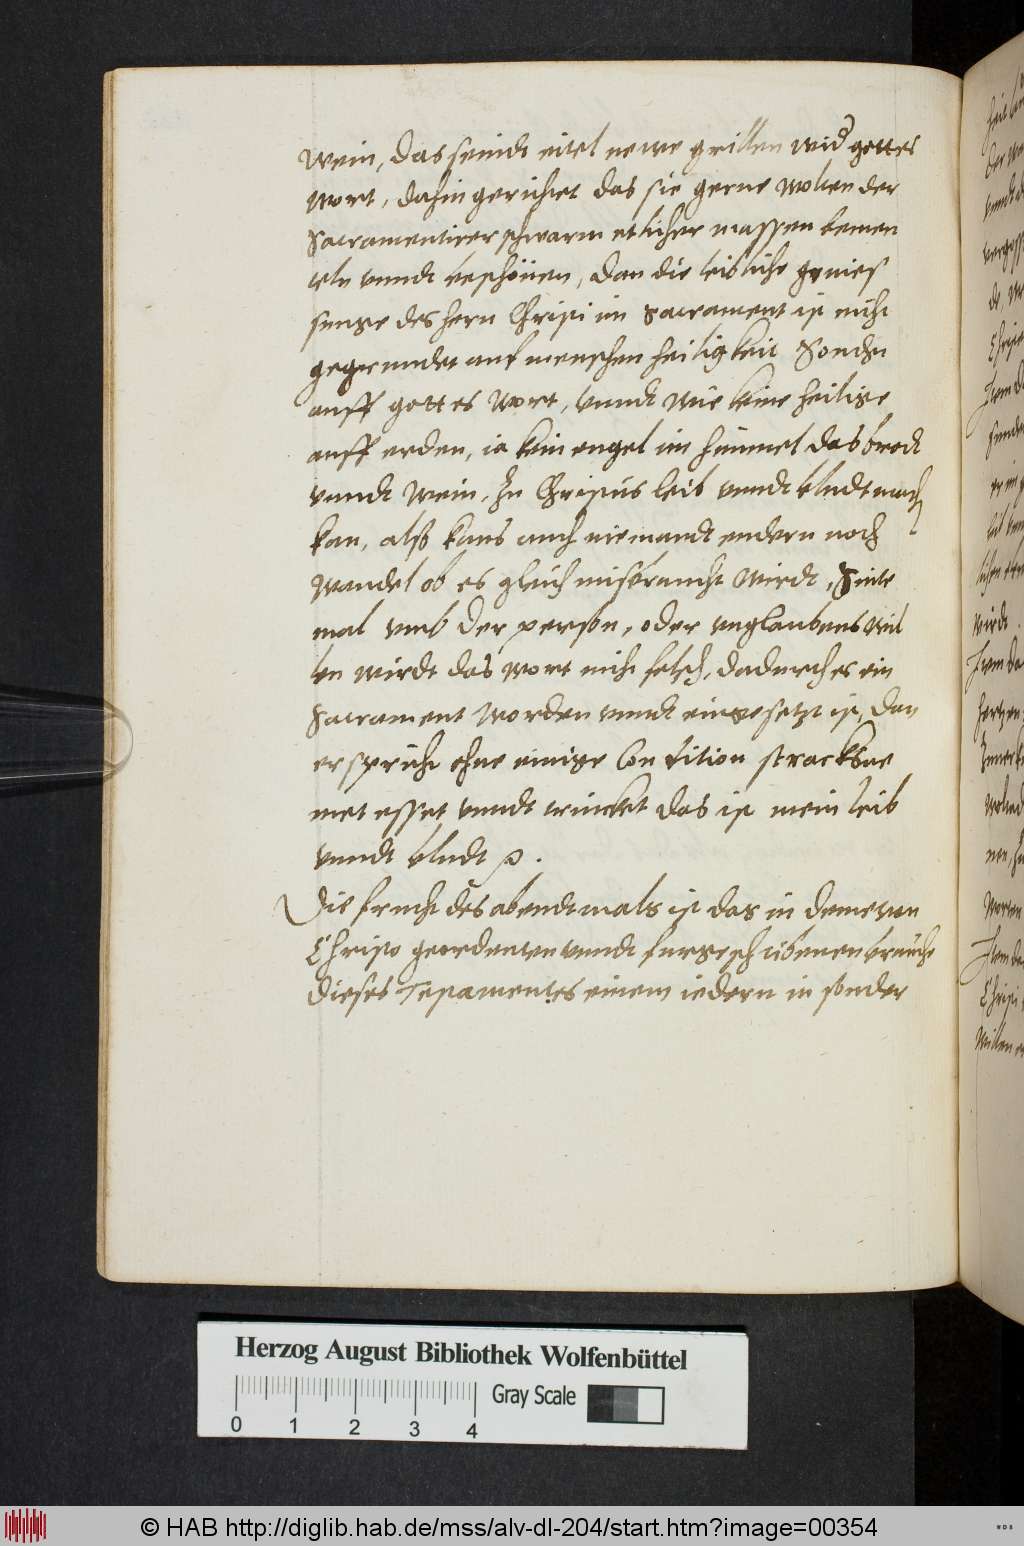 wein, das seindt eitel newe grillen wid gottes
wort, dahin gerichtet das sie gerne wolten der
Sacramentirer schwarm etlicher massen bemen
teln vnndt beschönen, dan die leibliche genies
sunge des hern Christi im Sacrament ist nicht
gegrundet auf menschen heiligkeit Sondern
auff gottes wort, vnndt wie keine heilige
auff erden, ia kein engel im himmel das brodt
vnndt wein, zu Christus leib vnndt bludt mach
kan, alß kans auch niemandt endern noch
wandel ob es gleich misbraucht wirdt, Sinte
mal vmb der person, oder vnglaubens wil
len wirdt das wort nicht falsch, dadurch es ein
Sacrament worden vnndt eingesetzt ist, dan
er spricht ohne einige Condition stracks ne
met esset vnndt trincket das ist mein leib
vnndt bludt
Die frucht des abendtmals ist das in deme von
Christo geordenten vnndt furgeschribenen brauche
dieses Testamentes einem iedern in sonder
Herzog August Bibliothek Wolfenbüttel
Gray Scale
0 1 2 3 4
© HAB http://diglib.hab.de/mss/alv-dl-204/start.htm?image=00354